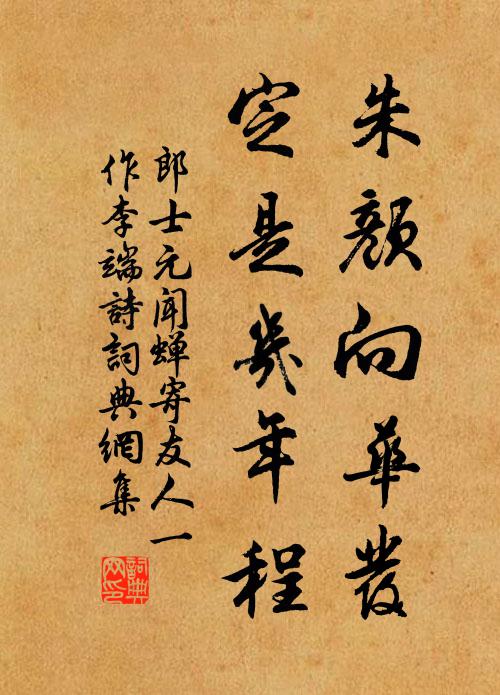 朱顏向華發
定是幾年程
郎士元聞蟬寄友人一
作李端詩詞典網集
詞典
网印